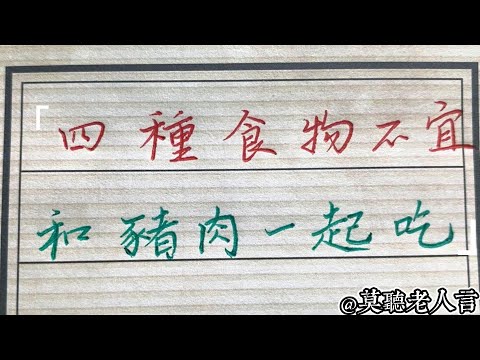 「四種食物不宜
和豬肉一起吃」
@莫聽老人言